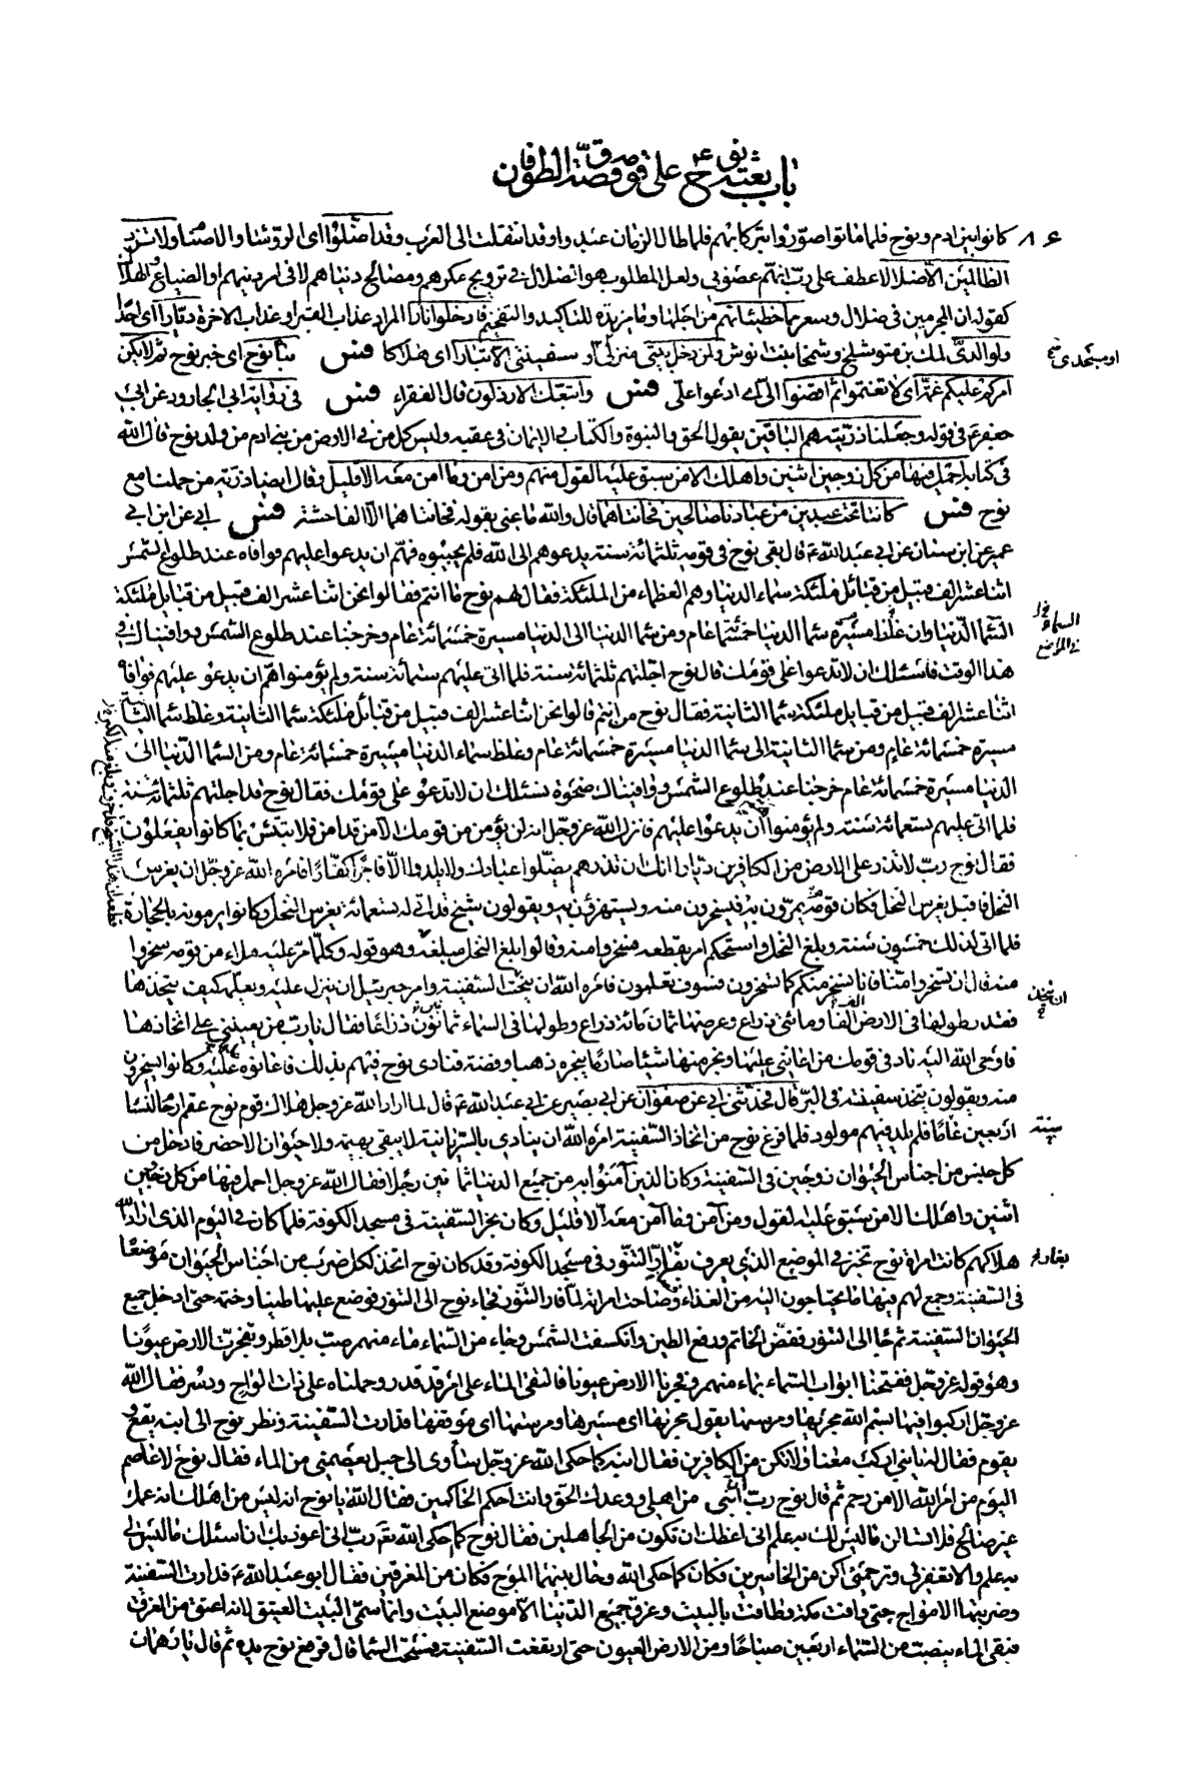 باب بعثته نوح ع على قومه وقصة الطوفان
٨٦ كانوا بين ادم ونوح فلما ماتوا صوّروا تبركا بهم فلما طال الزمان عبدوا وقد انتقلت الى العرب وقد اضلّوا اى الرؤساء والاصنام ولا تزد
الظالمين الا ضلالا عطف على رب انهم عصونى ولعل المطلوب هو الضلال فى ترويج مكرهم ومصالح دنياهم لا فى امر دينهم او الضياع والهلاك
كقوله ان المجرمين فى ضلال وسعر مما خطيئاتهم من اجلها وما مزيدة للتاكيد والتفخيم فادخلوا نارا المراد عذاب القبر او عذاب الاخرة ديّارا اى احدا
ولوالدىّ لمك بن متوشلخ وشمخا بنت انوش ولمن دخل بيتى منزلى او سفينتى الا تبارا اى هلاكا فس نبأ نوح اى خبر نوح ثم لا يكن
او مسجدى خ
امركم عليكم غمّة اى لا تغتموا ثم اقضوا الىّ اى ادعوا علىّ فس واتبعك الارذلون قال الفقراء فس فى رواية ابى الجارود عن ابى
جعفر ع فى قوله وجعلنا ذريّته هم الباقين يقول الحق والنبوة والكتاب والايمان فى عقبه وليس كل من فى الارض من بنى ادم من ولد نوح قال الله
فى كتابه احمل فيها من كل زوجين اثنين واهلك الا من سبق عليه القول منهم ومن امن وما آمن معه الا قليل وقال ايضا ذرّية من حملنا مع
نوح فس كانتا تحت عبدين من عبادنا صالحين فخانتاهما قال والله ما عنى بقوله فخانتاهما الا الفاحشة فس ابى عن ابن ابى
عمير عن ابن سنان عن ابى عبد الله ع قال بقى نوح فى قومه ثلثمائة سنة يدعوهم الى الله فلم يجيبوه فهمّ ان يدعوا عليهم فوافاه عند طلوع الشمس
اثنا عشر الف قبيل من قبائل ملئكة سماء الدنيا وهم العظماء من الملئكة فقال لهم نوح ما انتم فقالوا نحن اثنا عشر الف قبيل من قبايل ملئكة
السماء الدّنيا وان غلظ مسيرة سماء الدنيا خمسمائة عام ومن سماء الدنيا الى الدنيا مسيرة خمسمائة عام وخرجنا عند طلوع الشمس ووافيناك فى
هذا الوقت فنسئلك ان لا تدعوا على قومك قال نوح اجلتهم ثلثمائة سنة فلما اتى عليهم ستمائة سنة ولم يؤمنوا همّ ان يدعو عليهم فوافاه
اثنا عشر الف قبيل من قبايل ملئكة سماء الثانية فقال نوح من انتم قالوا نحن اثنا عشر الف قبيل من قبائل ملئكة سماء الثانية وغلظ سماء الثانية
مسيرة خمسمائة عام ومن سماء الثانية الى سماء الدنيا مسيرة خمسمائة عام وغلظ سماء الدنيا مسيرة خمسمائة عام ومن السماء الدّنيا الى
الدنيا مسيرة خمسمائة عام خرجنا عند طلوع الشمس ووافيناك ضحوة نسئلك ان لا تدعو على قومك فقال نوح قد اجلتهم ثلثمائة سنة
فلما اتى عليهم تسعمائة سنة ولم يؤمنوا همّ ان يدعوا عليهم فانزل الله عز وجل انه لن يؤمن من قومك الا من قد امن فلا تبتئس بما كانوا يفعلون
فقال نوح ربّ لا تذر على الارض من الكافرين ديّارا انك ان تذرهم يضلّوا عبادك ولا يلدوا الّا فاجرا كفّارا فامره الله عز وجل ان يغرس
النخل فاقبل يغرس النخل فكان قومه يمرّون به فيسخرون منه ويستهزؤن به ويقولون شيخ قد اتى له تسعمائة يغرس النخل وكانوا يرمونه بالحجارة
فلما اتى لذلك خمسون سنة وبلغ النخل واستحكم امر بقطعه فسخروا منه وقالوا بلغ النخل مبلغه وهو قوله وكلّما مرّ عليه ملاء من قومه سخروا
منه قال ان تسخروا منّا فانا نسخر منكم كما تسخرون فسوف تعلمون فامره الله ان ينحت السفينة وامر جبرئيل ان ينزل عليه ويعلّمه كيف يتخذها
ان يتخذ
فقدر طولها فى الارض الفا ومائتى ذراع وعرضها ثمان مائة ذراع وطولها فى السماء ثمانون ذراعا فقال يا رب من يعيننى على اتخاذها
فاوحى الله اليه ناد فى قومك من اعاننى عليها ونجر منها شيئا صار ما ينجره ذهبا وفضة فنادى نوح فيهم بذلك فاعانوه عليه وكانوا يسخرون
منه ويقولون يتخذ سفينة فى البرّ قال فحدّثنى ابى عن صفوان عن ابى بصير عن ابى عبد الله ع قال لما اراد الله عز وجل هلاك قوم نوح عقم ارحام النساء
اربعين عاما فلم يلد فيهم مولود فلما فرغ نوح من اتخاذ السّفينة امره الله ان ينادى بالسّريانية لا يبقى بهيمة ولا حيوان الا حضر فادخل من
سنة
كل جنس من اجناس الحيوان زوجين فى السفينة وكان الذين آمنوا به من جميع الدنيا ثمانين رجلا فقال الله عز وجل احمل فيها من كل زوجين
اثنين واهلك الا من سبق عليه القول ومن آمن وما آمن معه الا قليل وكان نجر السّفينة فى مسجد الكوفة فلما كان فى اليوم الذى اراد الله
هلاكهم كانت امراة نوح تخبز فى الموضع الذى يعرف بفار التّنّور فى مسجد الكوفة وقد كان نوح اتخذ لكل ضرب من اجناس الحيوان موضعا
فى السّفينة وجمع لهم فيها ما يحتاجون اليه من الغذاء وصاحت امراته لمّا فار التّنّور فجاء نوح الى التنور فوضع عليها طينا وختمه حتى ادخل جميع
الحيوان السفينة ثم جاء الى التنور ففضّ الخاتم ورفع الطين وانكسفت الشمس وجاء من السّماء ماء منهمر صبّ بلا قطر وتفجرت الارض عيونا
وهو قوله عز وجل ففتحنا ابواب السّماء بماء منهمر وفجرنا الارض عيونا فالتقى الماء على امر قد قدر وحملناه على ذات الواح ودسر فقال الله
عز وجل اركبوا فيها بسم الله مجريها ومرسيها يقول مجريها اى مسيرها ومرسيها اى موقفها فدارت السّفينة ونظر نوح الى ابنه يقع و
يقوم فقال له يا بنى اركب معنا ولا تكن من الكافرين فقال ابنه كما حكى الله عز وجل سآوى الى جبل يعصمنى من الماء فقال نوح لا عاصم
اليوم من امر الله الا من رحم ثم قال نوح ربّ انّ ابنى من اهلى وان وعدك الحق وانت احكم الحاكمين فقال الله يا نوح انه ليس من اهلك انه عمل
غير صالح فلا تسئلن ما ليس لك به علم انى اعظك ان تكون من الجاهلين فقال نوح كما حكى الله تع ربّ انى اعوذ بك ان اسئلك ما ليس لى
به علم والّا تغفر لى وترحمنى اكن من الخاسرين فكان كما حكى الله وحال بينهما الموج فكان من المغرقين فقال ابو عبد الله ع فدارت السّفينة
وضربتها الامواج حتى وافت مكة وطافت بالبيت وغرق جميع الدّنيا الّا موضع البيت وانما سمّى البيت العتيق لانه اعتق من الغرق
فبقى الماء ينصبّ من السّماء اربعين صباحا ومن الارض العيون حتى ارتفعت السّفينة فسحّت السماء قال فرفع نوح يده ثم قال يا رهمان